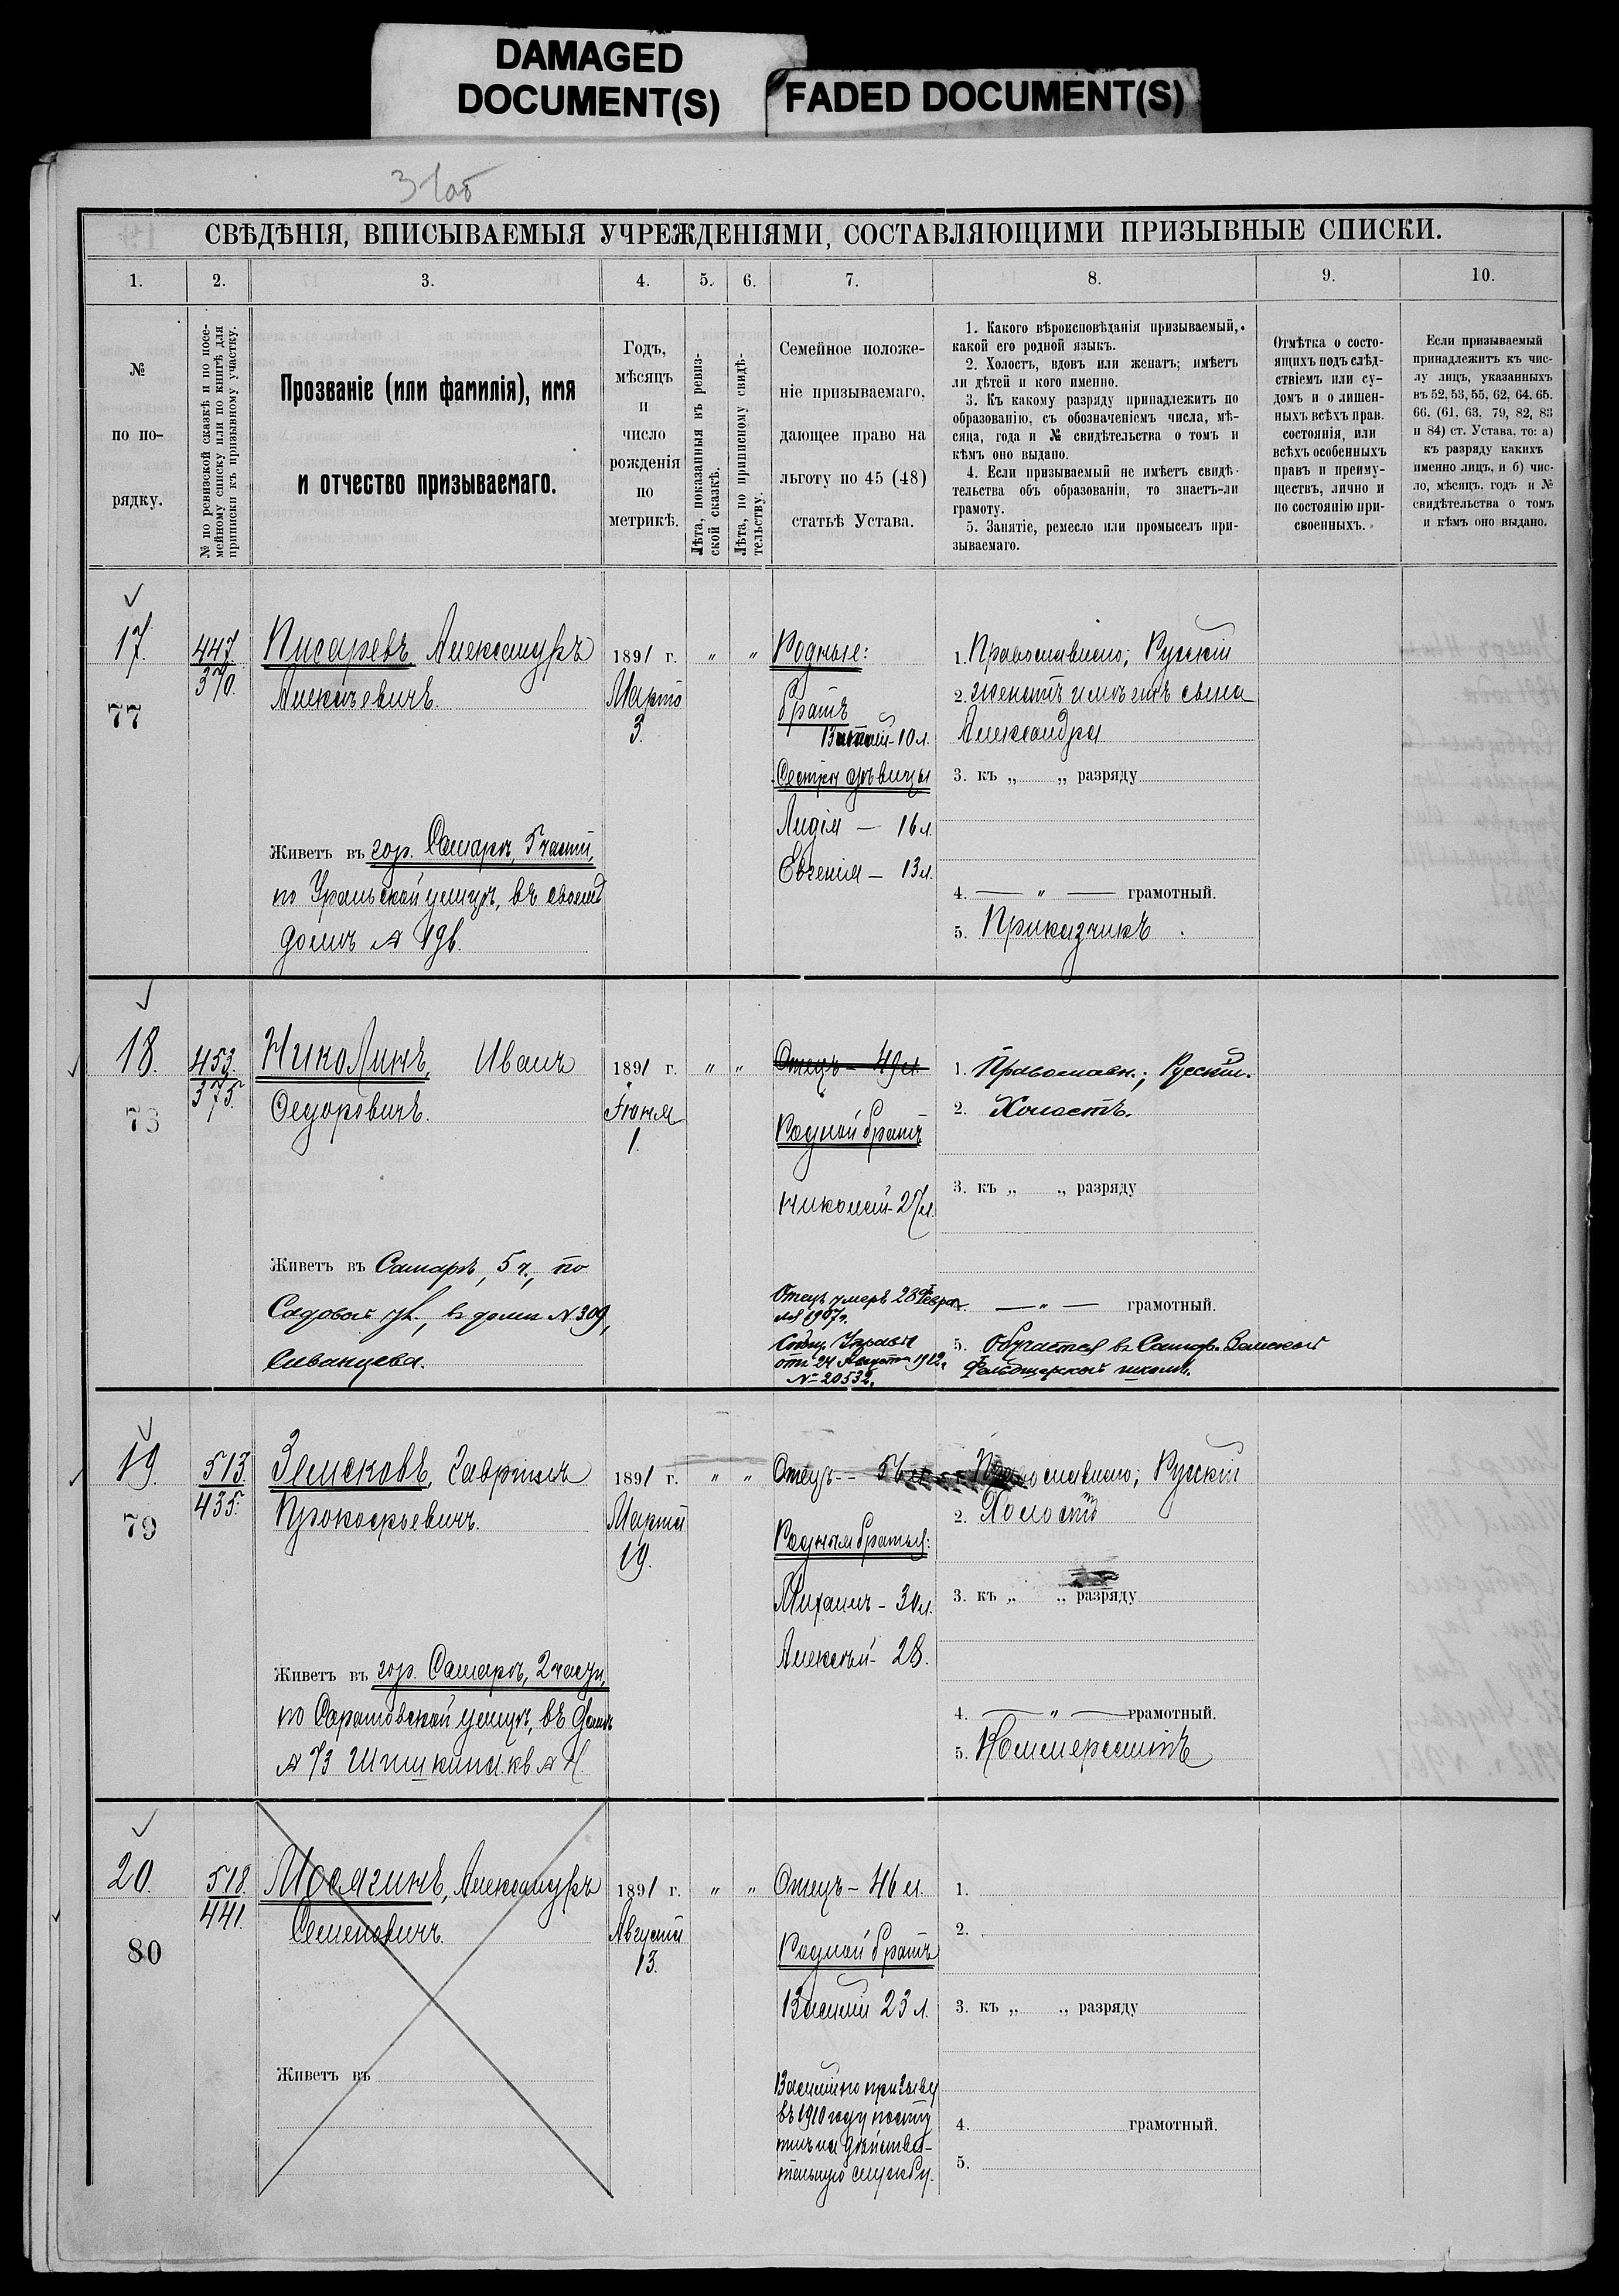 DAMAGED
DOCUMENT(S)
FADED DOCUMENT(S)
СВѢДѢНІЯ, ВПИСЫВАЕМЫЯ УЧРЕЖДЕНІЯМИ, СОСТАВЛЯЮЩИМИ ПРИЗЫВНЫЕ СПИСКИ.
1. 2. 3. 4. 5. 6. 7. 8. 9. 10.
№
по по-
рядку.
№ по ревизской сказкѣ и по посе-
мейному списку или по книгѣ для
приписки къ призывному участку.
Прозваніе (или фамилія), имя
и отчество призываемаго.
Годъ,
мѣсяцъ
и
число
рожденія
по
метрикѣ.
Лѣта, показанныя въ ревиз-
ской сказкѣ.
Лѣта, по приписному свидѣ-
тельству.
Семейное положе-
ніе призываемаго,
дающее право на
льготу по 45 (48)
статьѣ Устава.
1. Какого вѣроисповѣданія призываемый,
какой его родной языкъ.
2. Холостъ, вдовъ или женатъ; имѣетъ
ли дѣтей и кого именно.
3. Къ какому разряду принадлежитъ по
образованію, съ обозначеніемъ числа, мѣ-
сяца, года и № свидѣтельства о томъ и
кѣмъ оно выдано.
4. Если призываемый не имѣетъ свидѣ-
тельства объ образованіи, то знаетъ-ли
грамоту.
5. Занятіе, ремесло или промыселъ при-
зываемаго.
Отмѣтка о состо-
ящихъ подъ слѣд-
ствіемъ или су-
домъ и о лишен-
ныхъ всѣхъ прав.
состоянія, или
всѣхъ особенныхъ
правъ и преиму-
ществъ, лично и
по состоянію при-
своенныхъ.
Если призываемый
принадлежитъ къ чис-
лу лицъ, указанныхъ
въ 52, 53, 55, 62, 64, 65,
66, (61, 63, 79, 82, 83
и 84) ст. Устава, то: а)
къ разряду какихъ
именно лицъ, и б) чис-
ло, мѣсяцъ, годъ и №
свидѣтельства о томъ
и кѣмъ оно выдано.
17.
77
447.
370.
Писаревъ Александръ
Алексѣевичъ.
Живетъ въ гор. Самарѣ, 5 части,
по Уральской улицѣ, въ своемъ
домѣ
1891 г.
Марта
3.
„ „
Родные:
братъ
10 л.
Сестры дѣвицы
Лидія — 16 л.
Евгенія — 13 л.
1. Православнаго; Русскій
2. женатъ имѣетъ сына
Александра
3. къ „ „ разряду
4. — „ — грамотный.
5. Приказчикъ
18.
78
453.
375.
Николинъ, Иванъ
Федоровичъ.
Живетъ въ Самарѣ, 5 ч., по
Садовой ул., въ домѣ № 309,
Сиванцева.
1891 г.
Іюня
1.
„ „
Отецъ — 49 л.
Родной братъ
Николай - 27 л.
Отецъ умеръ 28 Февра-
ля 1907 г.
Сообщ. Управы
отъ 24 Августа 1912 г.
№ 20532.
1. Православн.; Русскій.
2. Холостъ.
3. къ „ „ разряду
4. — „ — грамотный.
5. Обучается въ Самар. Земской
Фельдшерской школѣ.
19.
79
513.
435.
Земсковъ, Гавріилъ
Прокофьевичъ.
Живетъ въ гор. Самарѣ, 2 части,
по Саратовской улицѣ, въ домѣ
№ 73 Шишкина. кв №
1891 г.
Марта
19.
„ „
Отецъ -
Родные братья:
Михаилъ - 30 л.
Алексѣй - 28.
Православнаго; Русскій
2. Холостъ
3. къ „ „ разряду
4. — „ — грамотный.
5. Коммерсантъ
20.
80
518.
441.
Мосягинъ, Александръ
Семеновичъ.
Живетъ въ
1891 г.
Августа
13.
„ „
Отецъ - 46 л.
Родной братъ
Василій 23 л.
Василій по призыву
въ 1910 году посту-
пилъ на дѣйстви-
тельную службу.
1.
2.
3. къ „ „ разряду
4. грамотный.
5.